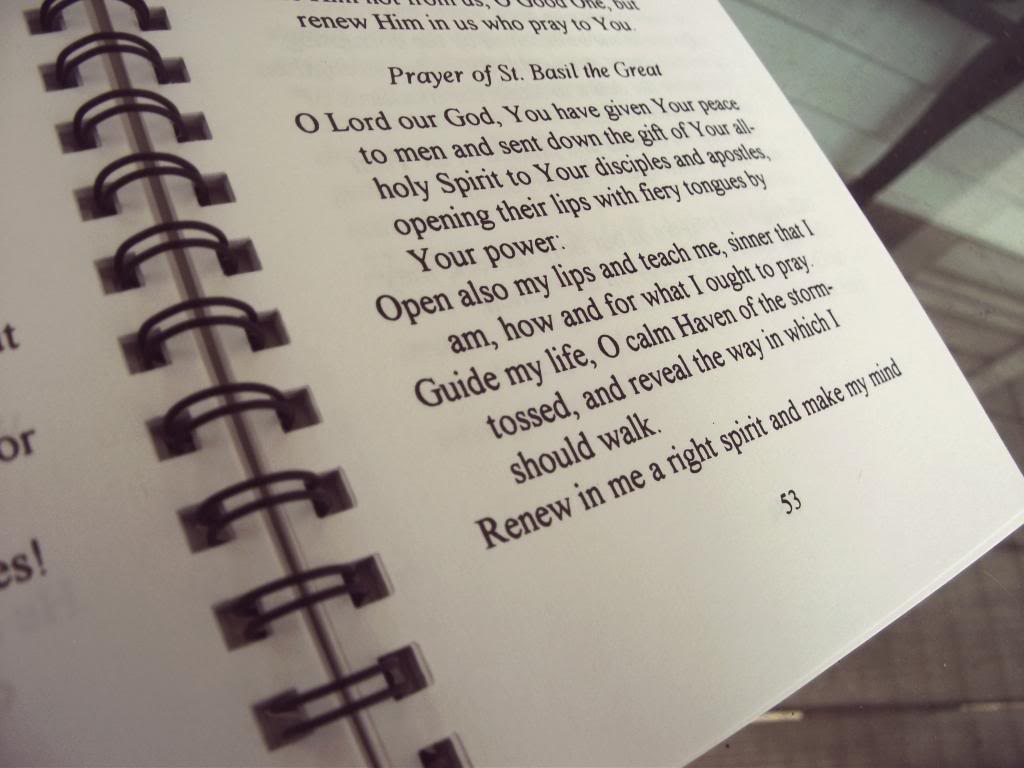 Him not from us, O Good One, but
renew Him in us who pray to You.
Prayer of St. Basil the Great
O Lord our God, You have given Your peace
to men and sent down the gift of Your all-
holy Spirit to Your disciples and apostles,
opening their lips with fiery tongues by
Your power:
Open also my lips and teach me, sinner that I
am, how and for what I ought to pray.
Guide my life, O calm Haven of the storm-
tossed, and reveal the way in which I
should walk.
Renew in me a right spirit and make my mind
53